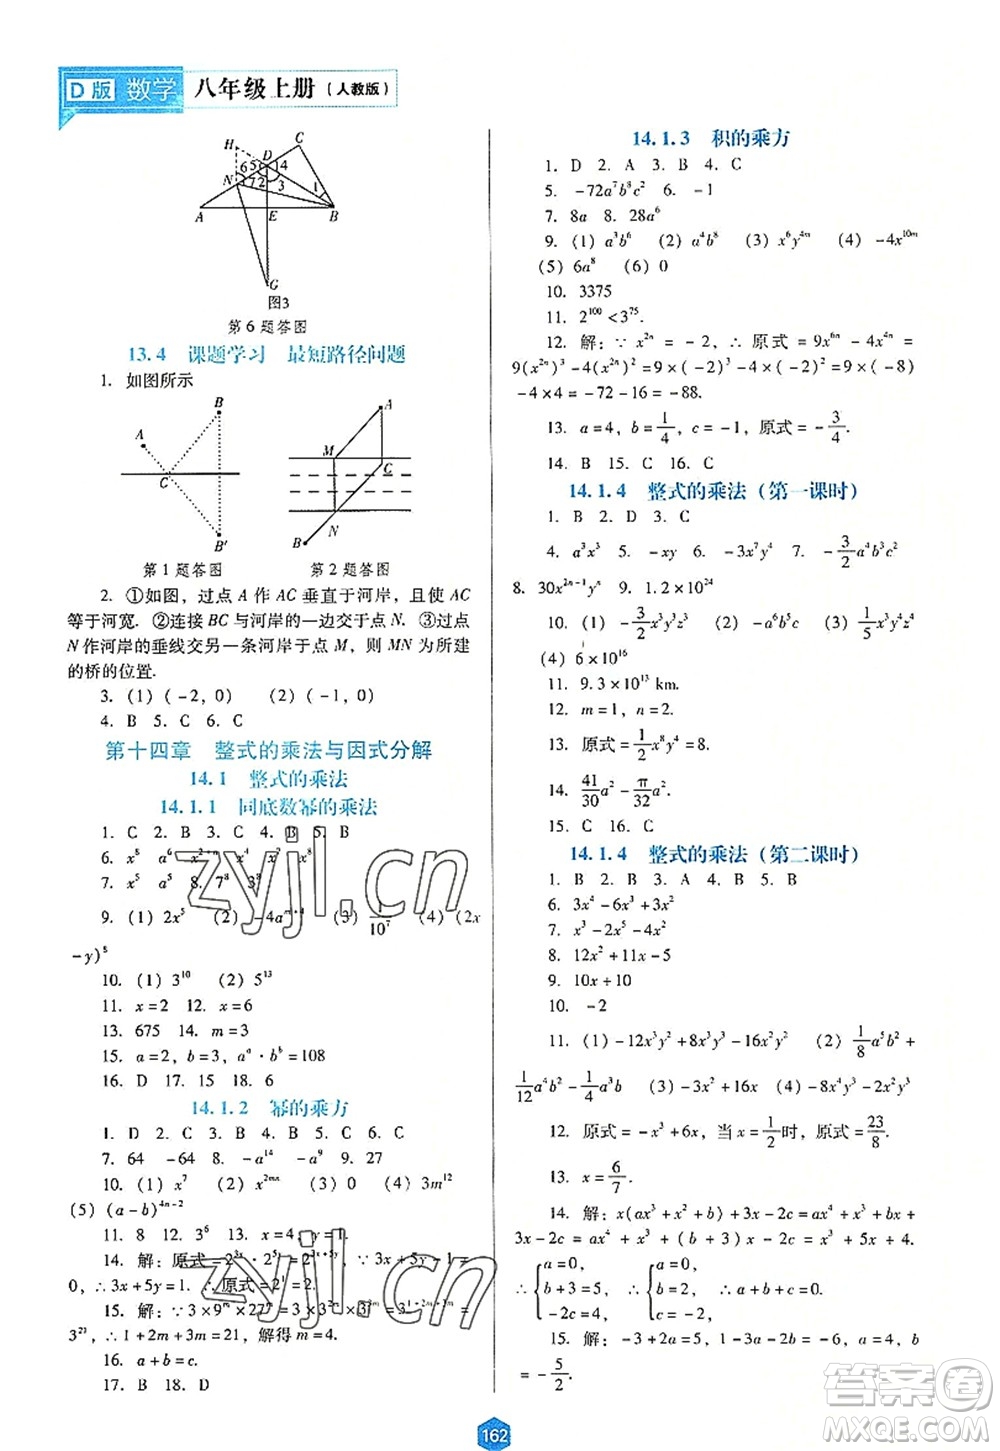 D版 数学 八年级上册（人教版）
H C D 6 5 4 N 7 2 3 1 A E B G
图3
第6题答图
13.4 课题学习 最短路径问题
1. 如图所示
B A C B′
A M C N B
第1题答图 第2题答图
2. ①如图，过点A作AC垂直于河岸，且使AC
等于河宽. ②连接BC与河岸的一边交于点N. ③过点
N作河岸的垂线交另一条河岸于点M，则MN为所建
的桥的位置.
3. (1) (-2, 0) (2) (-1, 0)
4. B 5. C 6. C
第十四章 整式的乘法与因式分解
14.1 整式的乘法
14.1.1 同底数幂的乘法
1. C 2. B 3. C 4. B 5. B
6. x⁸ a⁶ x²⁺ⁿ
7. x⁵ a⁵ 8. 7 3⁸
9. (1) 2x⁵ (3) 1/10⁷ (4) (2x
-y)⁵
10. (1) 3¹⁰ (2) 5¹³
11. x=2 12. x=6
13. 675 14. m=3
15. a=2, b=3, aᵃ·bᵇ=108
16. D 17. 15 18. 6
14.1.2 幂的乘方
1. D 2. C 3. B 4. C 5. A 6. C
7. 64 -64 8. -a¹⁴ -a⁹ 9. 17
10. (1) x⁷ (2) x²ᵐⁿ (3) 0 (4) 3m¹²
(5) (a-b)⁴ⁿ⁻²
11. 8 12. 3⁶ 13. x=4, y=1.
14. 解：原式=2³ˣ·2⁵ʸ=2³ˣ⁺⁵ʸ, ∵3x+5y-1=
0, ∴3x+5y=1. ∴原式=2¹=2.
15. 解：∵3×9ᵐ×27ᵐ=3×3²ᵐ×3³ᵐ=3¹⁺²ᵐ⁺³ᵐ=
3²¹, ∴1+2m+3m=21, 解得m=4.
16. a+b=c.
17. B 18. D
14.1.3 积的乘方
1. D 2. A 3. B 4. C
5. -72a⁷b⁸c² 6. -1
7. 8a 8. 28a⁶
9. (1) a³b⁶ (2) a⁴b⁸ (3) x⁶y⁴ᵐ (4) -4x¹⁰ᵐ
(5) 6a⁸ (6) 0
10. 3375
11. 2¹⁰⁰<3⁷⁵.
12. 解：∵x²ⁿ=-2, ∴原式=9x⁶ⁿ-4x⁴ⁿ=
9(x²ⁿ)³-4(x²ⁿ)²=9×(-2)³-4×(-2)²=9×(-8)
-4×4=-72-16=-88.
13. a=4, b=1/4, c=-1, 原式=-3/4.
14. B 15. C 16. C
14.1.4 整式的乘法（第一课时）
1. B 2. D 3. C
4. a³x³ 5. -xy 6. -3x⁷y⁴ 7. -3/2a⁴b³c²
8. 30x²ⁿ⁻¹yⁿ 9. 1.2×10²⁴
10. (1) -3/2x³y³z³ (2) -2a⁶b⁵c (3) 1/5x³y⁴z⁴
(4) 6×10¹⁶
11. 9.3×10¹³ km.
12. m=1, n=2.
13. 原式=1/2x⁸y⁴.
14. 41/30a²-π/32a².
15. C 16. C
14.1.4 整式的乘法（第二课时）
1. B 2. B 3. A 4. B 5. B
6. 3x⁴-6x³+3x²
7. x³-2x⁵-2x⁴
8. 12x²+11x-5
9. 10x+10
10. -2
11. (1) -12x³y²+8x³y³-16x²y² (2) 1/8a⁵b²+
1/12a⁴b²-1/4a³b (3) -2x²+16x (4) -8x⁴y-2x³y
12. 原式=-x³+6x, 当x=1/2时, 原式=23/8.
13. x=6/7.
14. 解：x(ax³+x²+b)+3x-2c=ax⁴+x³+bx+
3x-2c=ax⁴+x³+(b+3)x-2c=x³+5x+4.
∴{a=0, b+3=5, -2c=4. ∴{a=0, b=2, c=-2. ∴a+b+c=0.
15. 解：-3+2a=5, 1-3a-2b=-6, ∴a=4, b
=-5/2.
162
zyjl.cn
zyjl.cn
答案圈
MXQE.COM